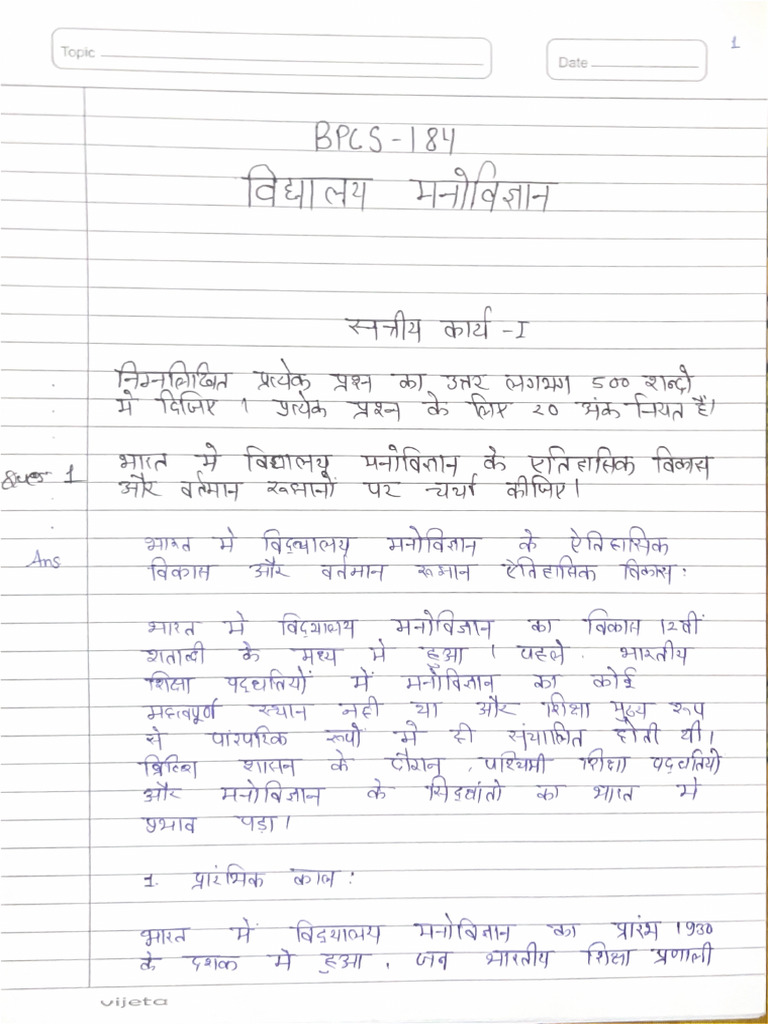 Topic
Date
1
BPCS-184
विद्यालय मनोविज्ञान
सत्रीय कार्य -I
निम्नलिखित प्रत्येक प्रश्न का उत्तर लगभग 500 शब्दो
मे दिजिए । प्रत्येक प्रश्न के लिए 20 अंक नियत हैं।
Ques 1 भारत मे विद्यालय मनोविज्ञान के ऐतिहासिक विकास
और वर्तमान रूझानों पर चर्चा कीजिए।
Ans भारत मे विद्यालय मनोविज्ञान के ऐतिहासिक
विकास और वर्तमान रूझान ऐतिहासिक विकास:
भारत मे विद्यालय मनोविज्ञान का विकास 12वीं
शताब्दी के मध्य मे हुआ । पहले, भारतीय
शिक्षा पद्धतियों में मनोविज्ञान का कोई
महत्वपूर्ण स्थान नही था और शिक्षा मुख्य रूप
से पारंपरिक रूपों मे ही संचालित होती थी।
ब्रिटिश शासन के दौरान, पश्चिमी शिक्षा पद्धतियो
और मनोविज्ञान के सिद्धांतो का भारत मे
प्रभाव पड़ा।
1. प्रारंभिक काल:
भारत में विद्यालय मनोविज्ञान का प्रारंभ 1930
के दशक मे हुआ, जब भारतीय शिक्षा प्रणाली
vijeta